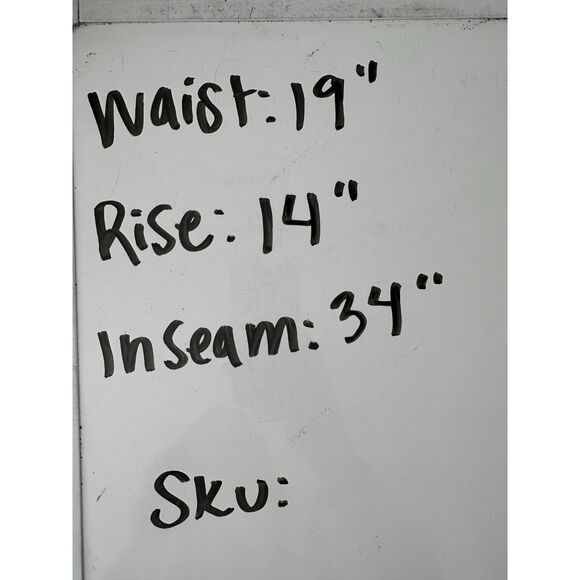 Waist: 19"
Rise: 14"
Inseam: 34"
SKU: